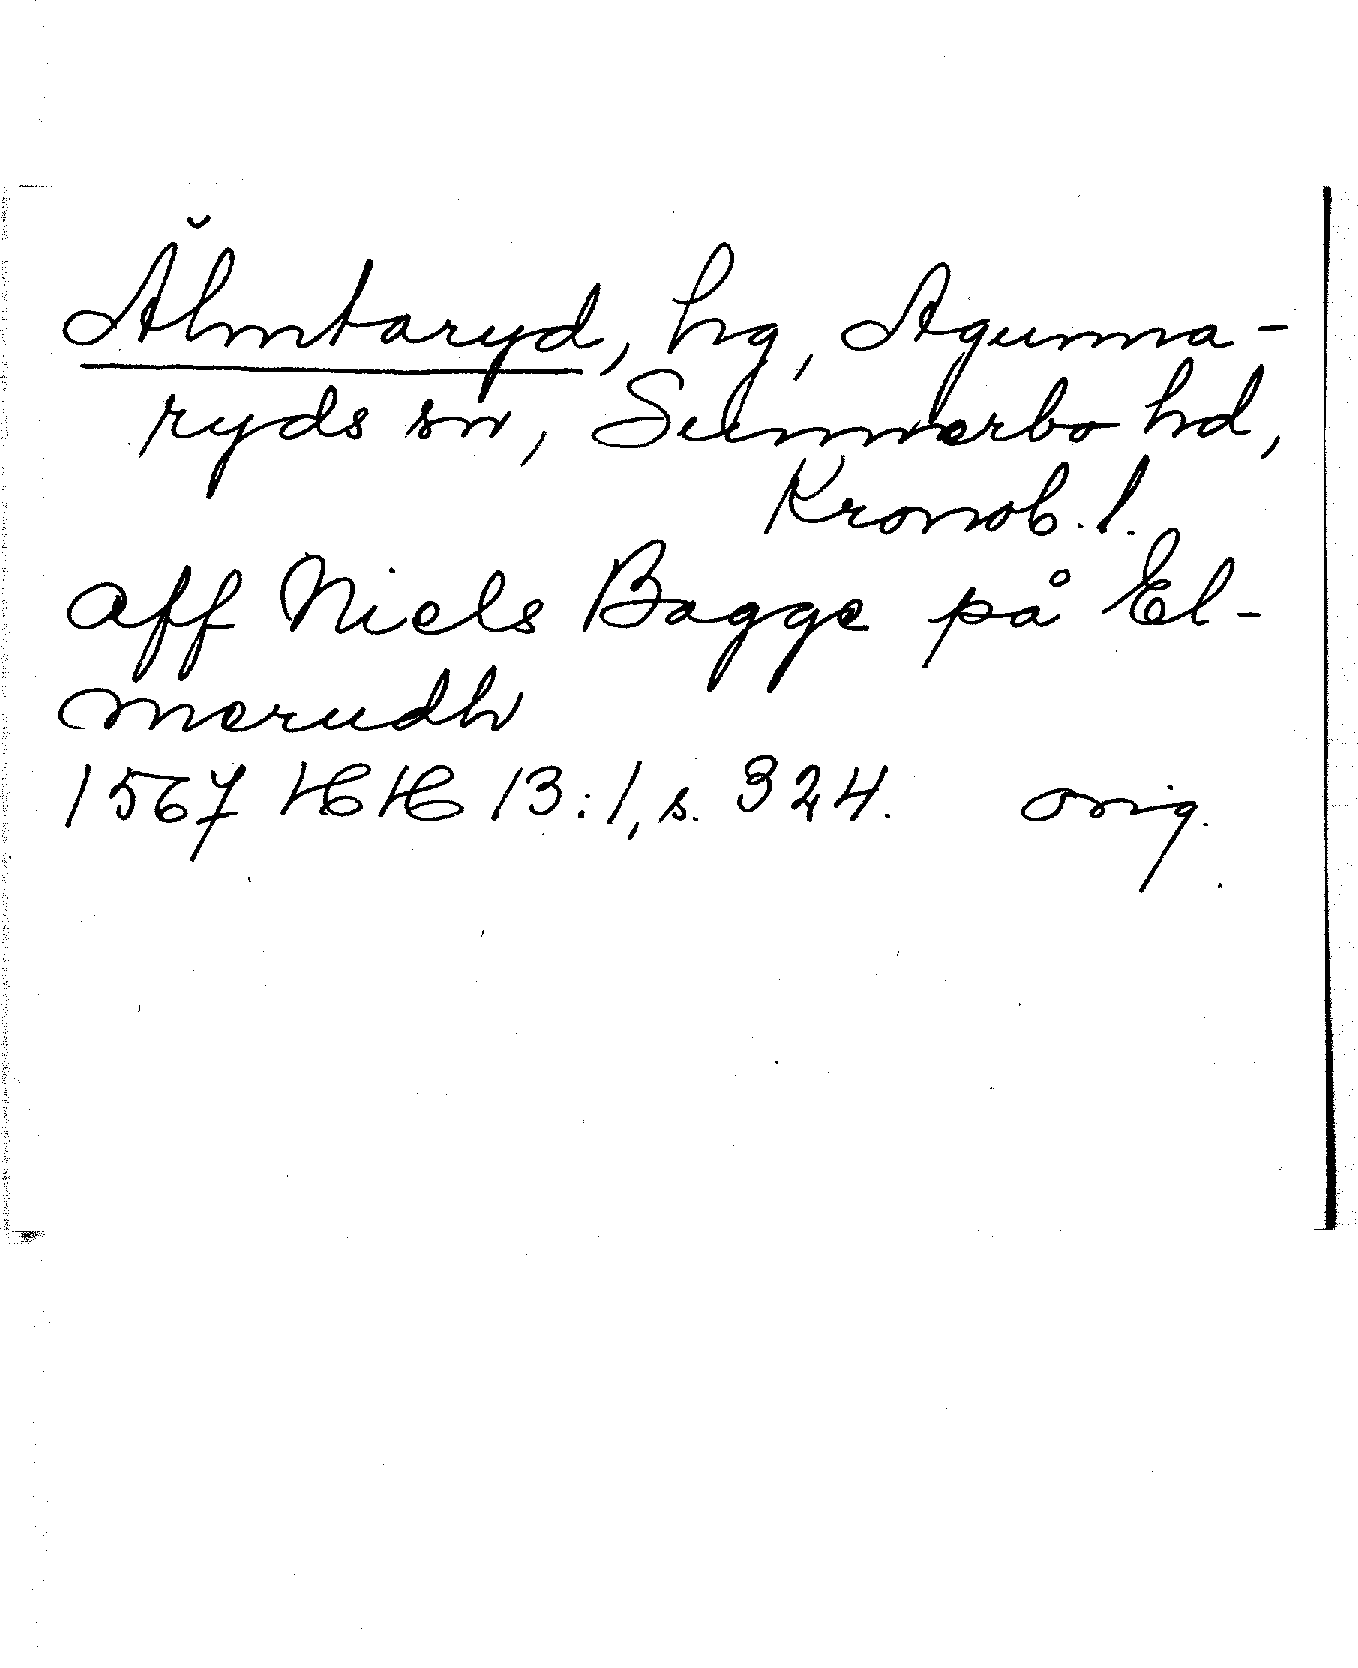 Älmtaryd, hg, Agunna-
ryds sn, Sunnerbo hd,
Kronob. l.
aff Niels Bagge på El-
merudh
1567 HH 13:1, s. 324. orig.